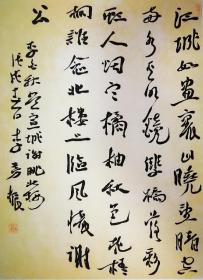 江城如畫裏山曉望晴空
兩水夾明鏡雙橋落彩
虹人烟寒橘柚秋色老梧
桐誰念北樓上臨風懷謝
公
李白秋登宣城謝朓北樓